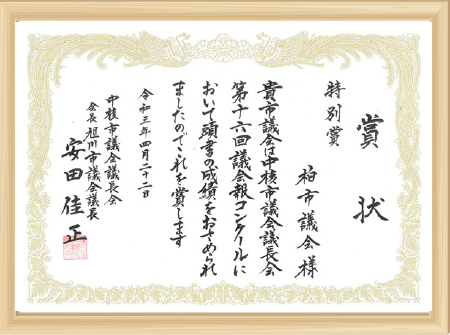 賞状
特別賞
柏市議会様
貴市議会は中核市議会議長会
第十六回議会報コンクールに
おいて頭書の成績をおさめられ
ましたのでこれを賞します
令和三年四月二十二日
中核市議会議長会
会長 旭川市議会議長
安田佳正